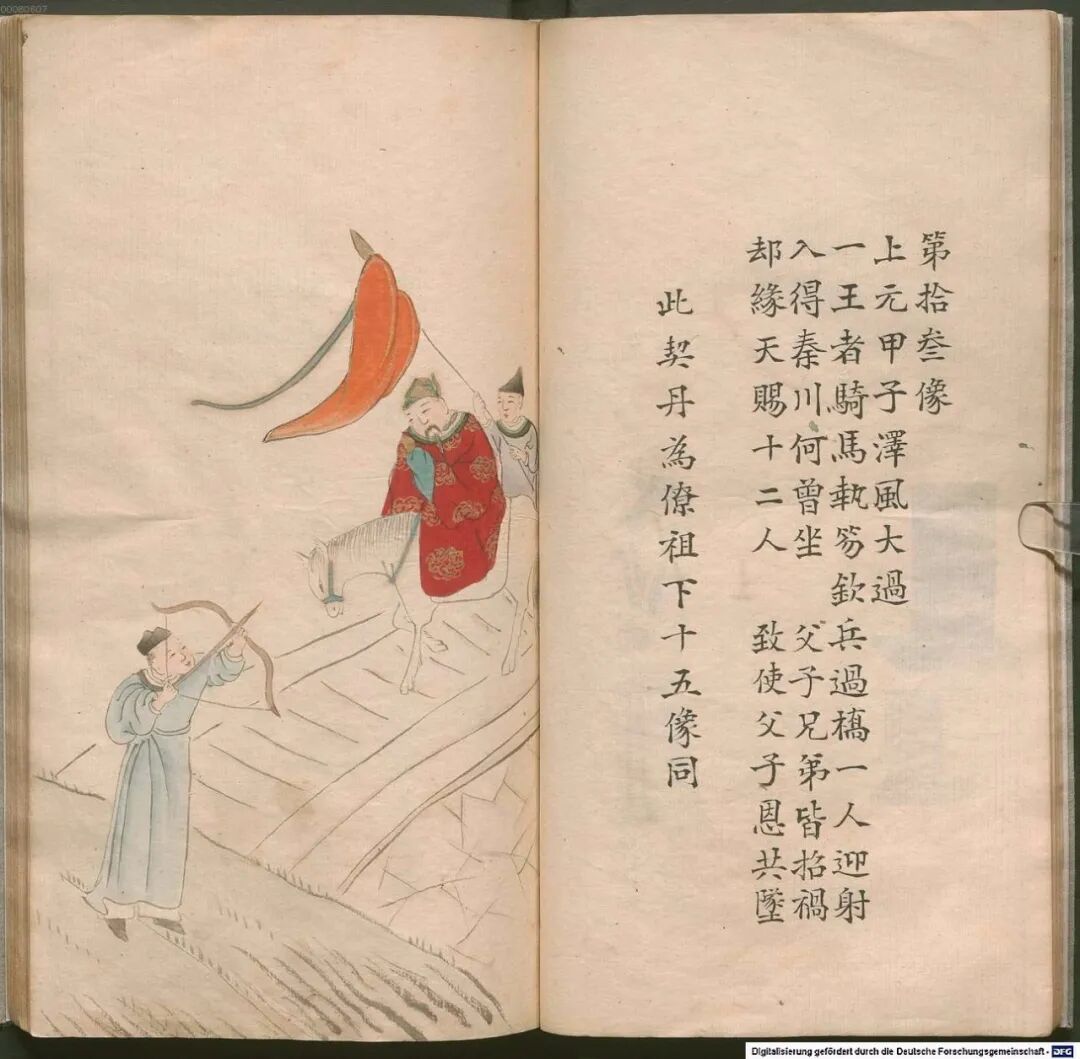 00080607
第拾叁像
上元甲子澤風大過
一王者騎馬執笏欽兵過橋一人迎射
入得秦川何曾坐 父子兄弟皆招禍
却緣天賜十二人 致使父子恩共墜
此契丹為僚祖下十五像同
Digitalisierung gefördert durch die Deutsche Forschungsgemeinschaft - DFG